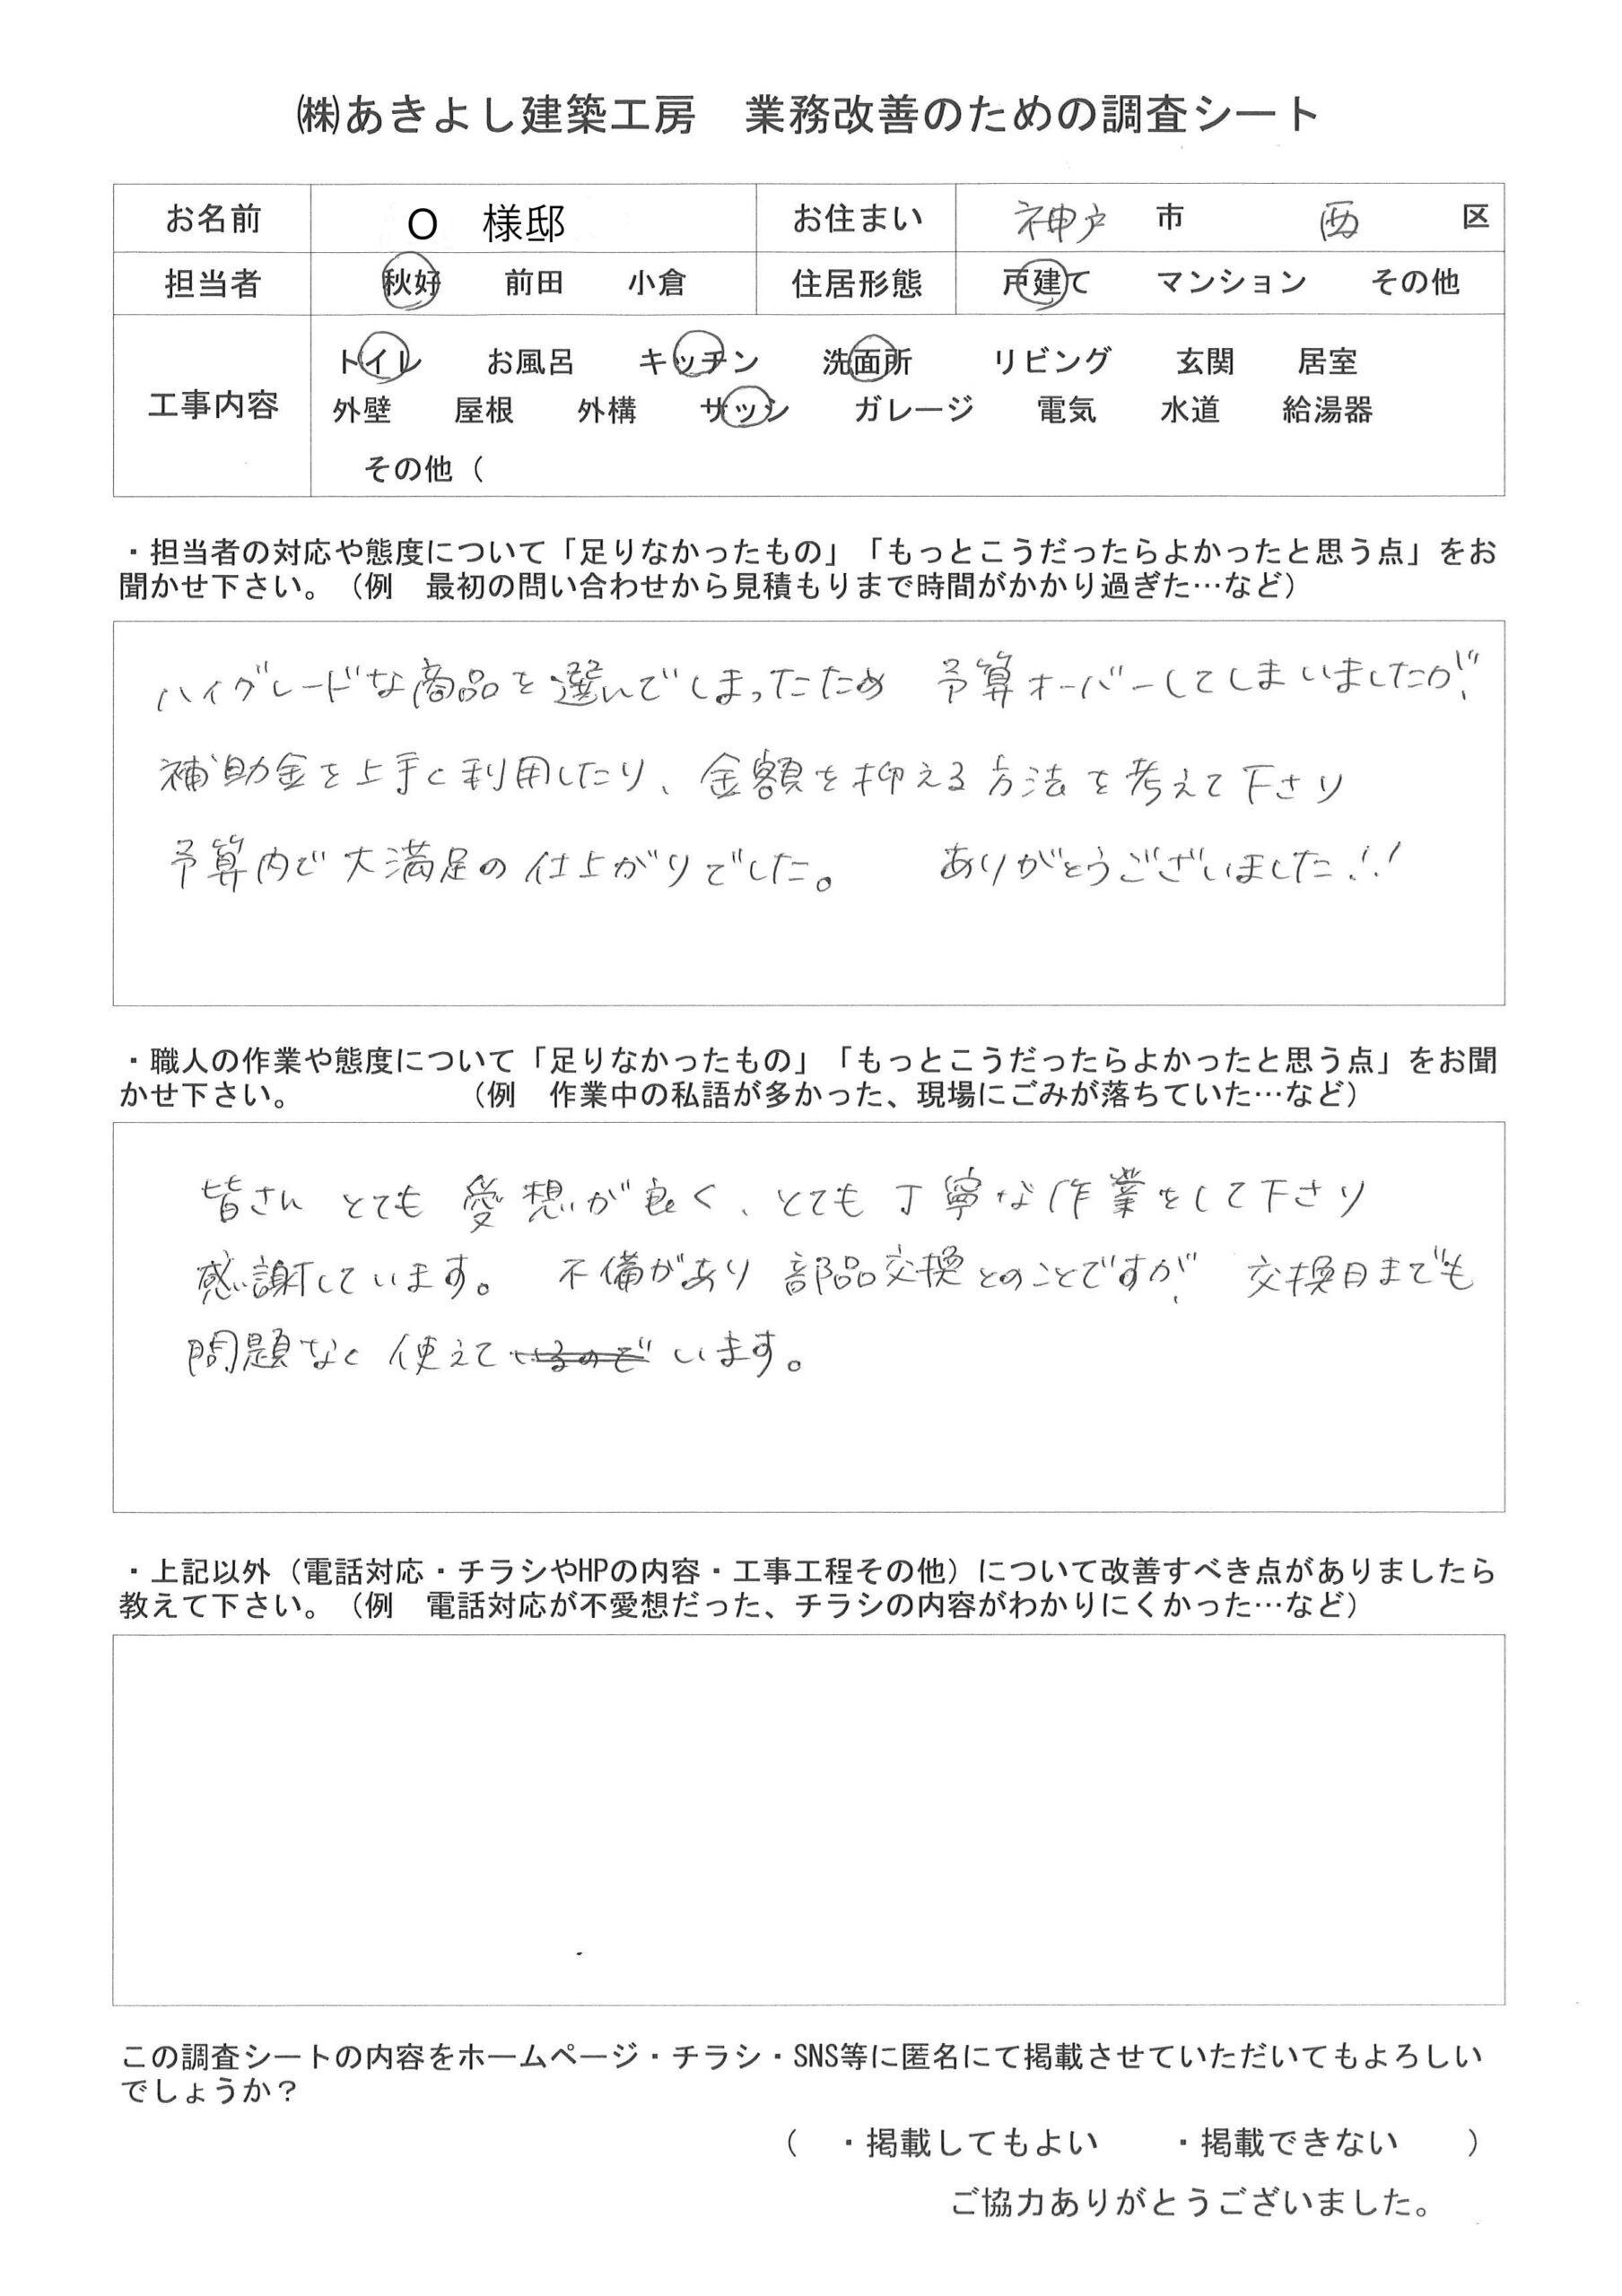 ㈱あきよし建築工房　業務改善のための調査シート
お名前　O　様邸　お住まい　神戸　市　西　区
担当者　秋好　前田　小倉　住居形態　戸建て　マンション　その他
トイレ　お風呂　キッチン　洗面所　リビング　玄関　居室
工事内容
外壁　屋根　外構　サッシ　ガレージ　電気　水道　給湯器
その他（
・担当者の対応や態度について「足りなかったもの」「もっとこうだったらよかったと思う点」をお
聞かせ下さい。（例　最初の問い合わせから見積もりまで時間がかかり過ぎた…など）
ハイグレードな商品を選んでしまったため　予算オーバーしてしまいましたが、
補助金を上手く利用したり、金額を抑える方法を考えて下さり
予算内で大満足の仕上がりでした。　ありがとうございました!!
・職人の作業や態度について「足りなかったもの」「もっとこうだったらよかったと思う点」をお聞
かせ下さい。　（例　作業中の私語が多かった、現場にごみが落ちていた…など）
皆さん　とても　愛想が良く、とても丁寧な作業をして下さり
感謝しています。　不備があり　部品交換とのことですが、交換日までも
問題なく使えているのでいます。
・上記以外（電話対応・チラシやHPの内容・工事工程その他）について改善すべき点がありましたら
教えて下さい。（例　電話対応が不愛想だった、チラシの内容がわかりにくかった…など）
この調査シートの内容をホームページ・チラシ・SNS等に匿名にて掲載させていただいてもよろしい
でしょうか？
（　・掲載してもよい　・掲載できない　）
ご協力ありがとうございました。